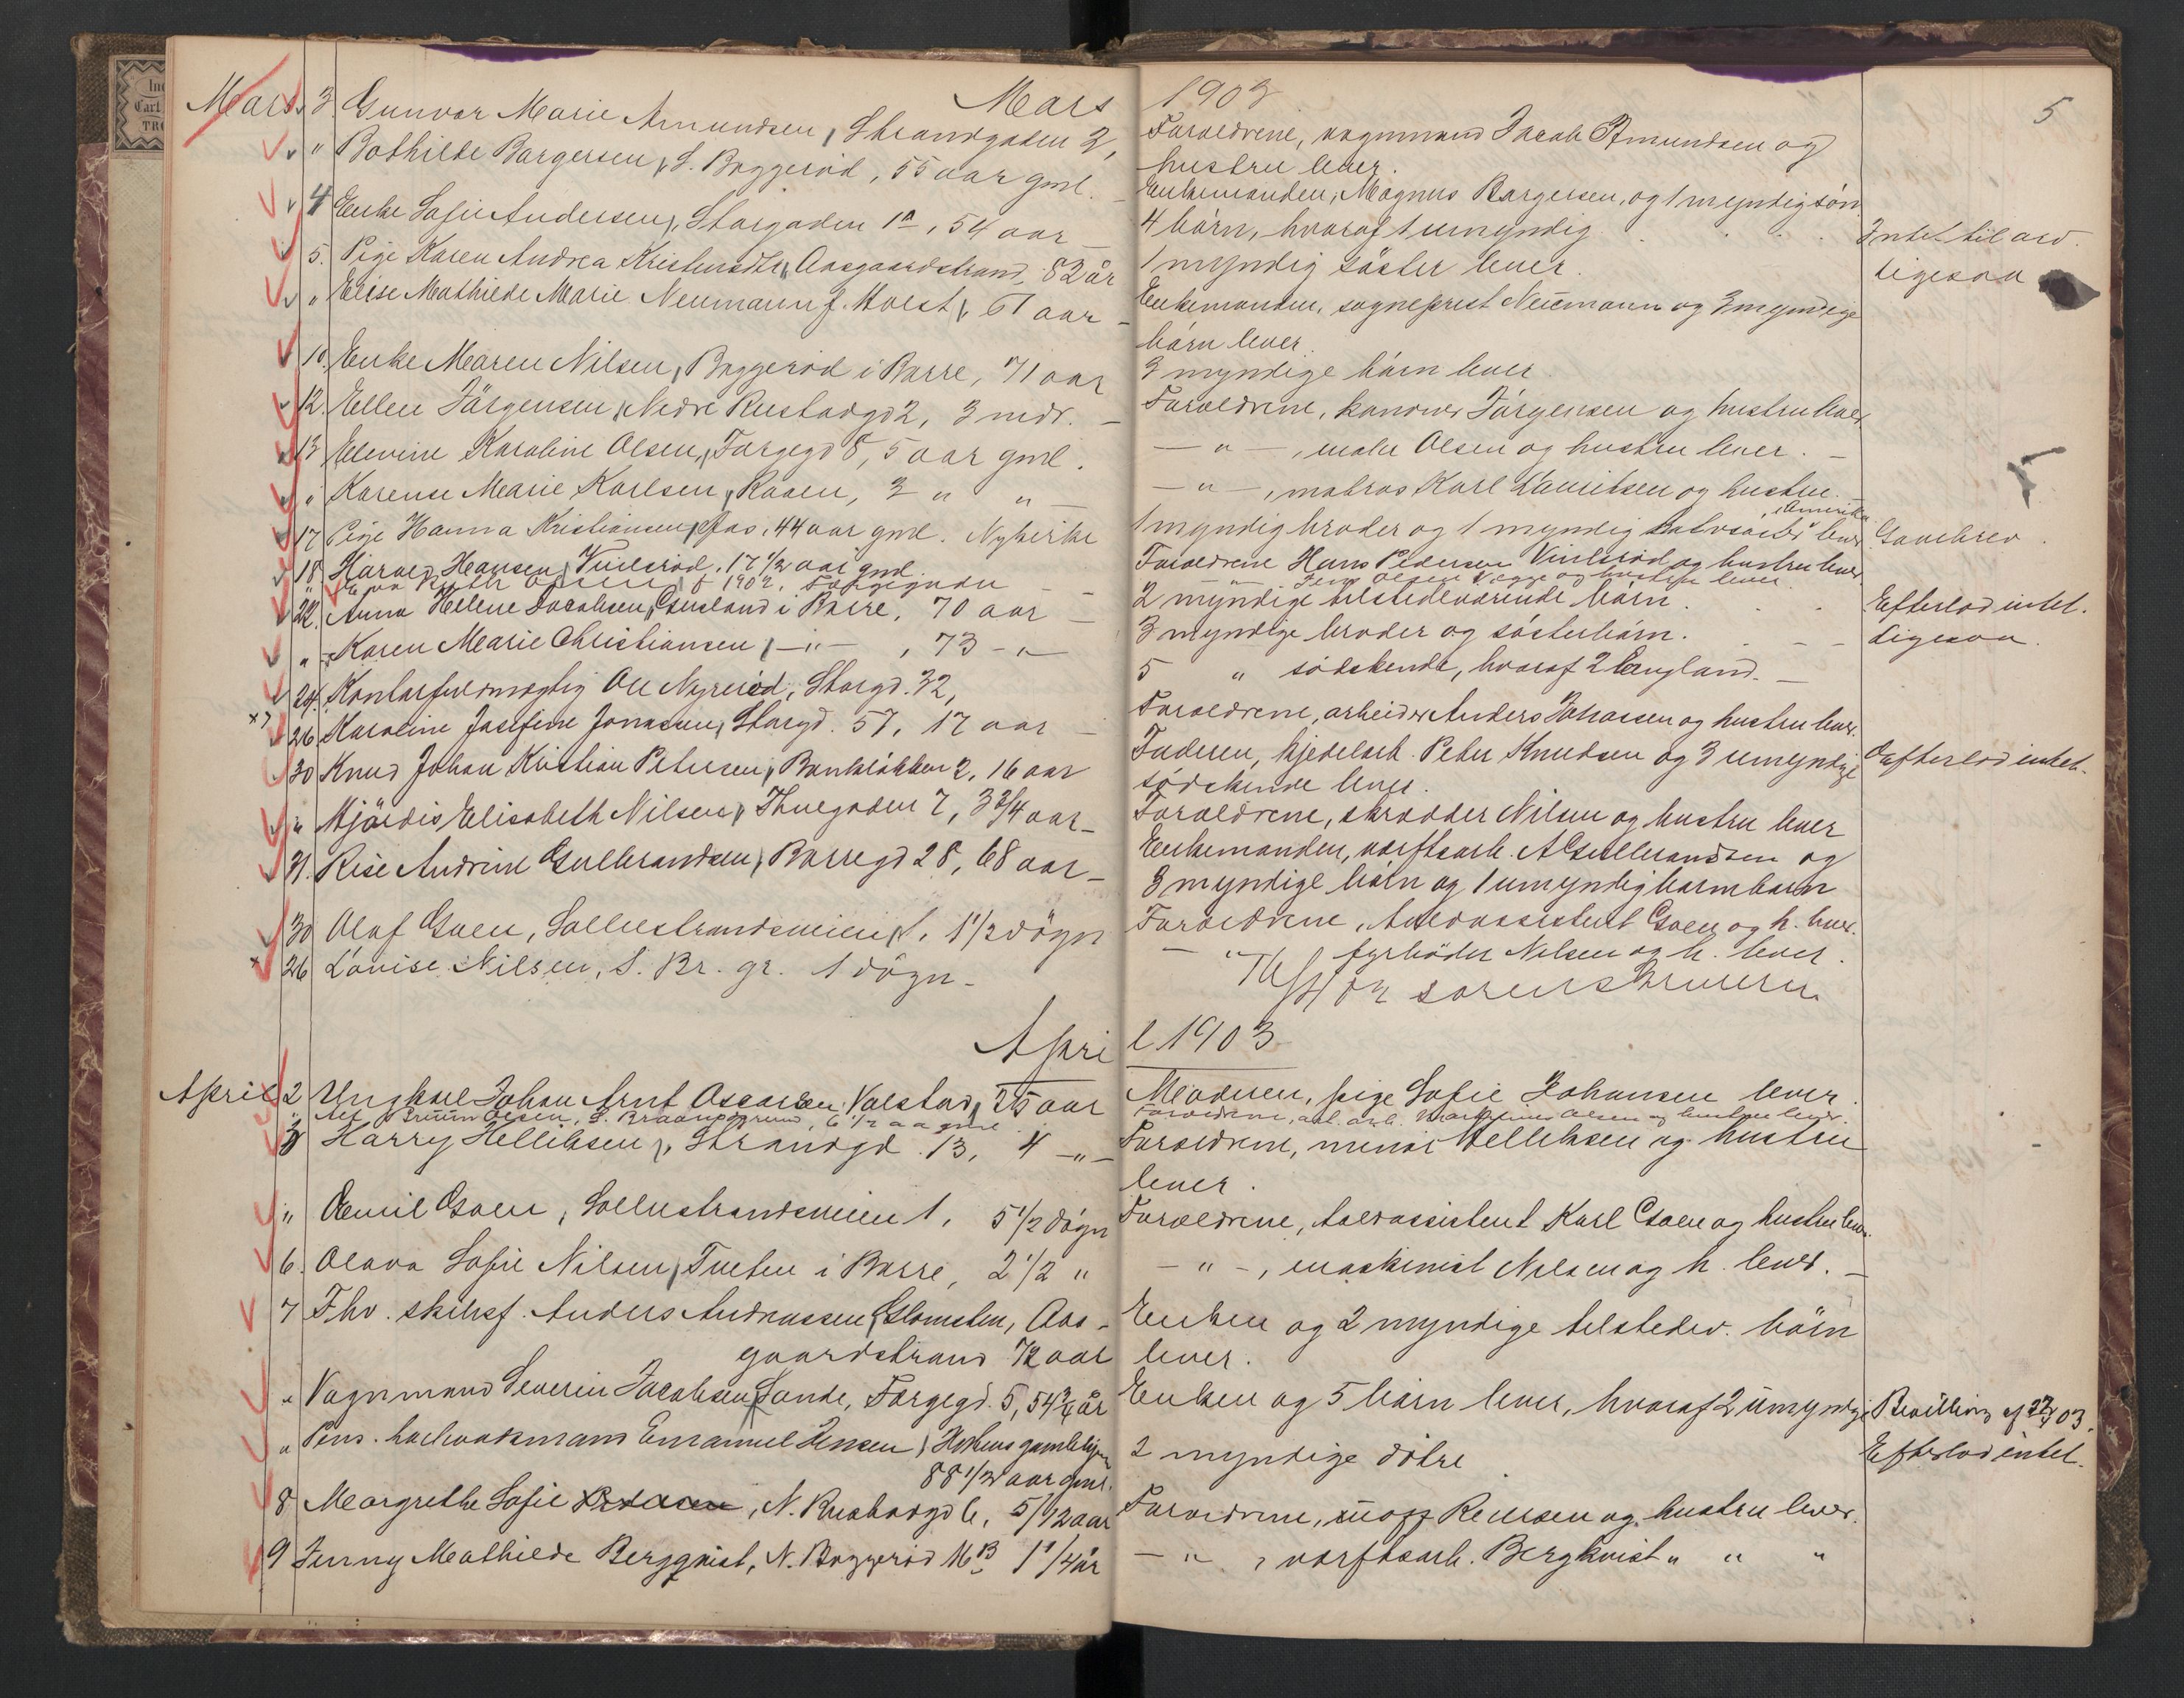 Mars 1903
5
Mars 3. Gunvor Marie Amundsen, Strandgaden 2, Foreldrene, vognmand Jacob Amundsen og
hustru lever.
" Bothilde Borgersen, S. Baggeröd, 55 aar gml. Enkemanden, Magnus Borgersen, og 1 myndig sön
4 Enke Sofie Andersen, Storgaden 1a, 54 aar — 4 börn, hvoraf 1 umyndig . . . Intet til arv.
5. Pige Karen Andrea Kristensdtr, Aasgaardstrand, 82 år 1 myndig söster lever. Ligesaa
" Elise Mathilde Marie Neumann f. Holst, 61 aar — Enkemanden, sogneprest Neumann og 3 myndige
börn lever.
10. Enke Maren Nilsen, Baggeröd i Borre, 71 aar 3 myndige börn lever.
12. Ellen Jörgensen, Nedre Rustadgd 2, 3 mdr. — Foreldrene, kanoner Jörgensen og hustru lever
13 Elevine Karoline Olsen, Fargegd 8, 5 aar gml. — " —, maler Olsen og hustru lever. —
" Karense Marie Karlsen, Raaen, 3 " " — — " —, matros Karl Lauritsen og hustru. —
i Amerika
17 Pige Hanna Kristiansen, Aas, 44 aar gml. Nykirke 1 myndig broder og 1 myndig halvsöster lever Gavebrev.
18 Harald Hansen, Vinlsröd, 17 1/2 aar gml. Foreldrene Hans Pedersen Vinlsröd og hustru lever
" Olsen, f 1902, Fargegaden — — " — Jens Olsen og hustru lever.
22. Anna Helene Jacobsen, Gusland i Borre, 70 aar — 2 myndige tilstedeværende börn . . . Efterlod intet.
" Karen Marie Christiansen, — " — , 73 — " — 3 myndige broder og sösterbörn. — — Ligesaa.
24. Kontorfuldmægtig Ole Nyreröd, Storgd. 32, 5 " södskende, hvoraf 2 England. —
26 Karoline Josefine Jonassen, Storgd. 57, 17 aar — Foreldrene, arbeider Anders Johassen og hustru lever.
30 Knud Johan Kristian Petersen, Bankløkken 2, 16 aar Faderen, kjedelarb. Peter Knudsen og 3 umyndige Efterlod intet.
södskende lever.
" Hjördis Elisabeth Nilsen, Thuegaden 7, 3 3/4 aar — Foreldrene, skrædder Nilsen og hustru lever
31. Rise Andrine Gulbrandsen, Borregd 28, 68 aar — Enkemanden, værftsarb. A Gulbrandsen og
3 myndige börn og 1 umyndig barnebarn
30 Olaf Goen, Sollistrandsveien 1, 1 1/2 dögn Foreldrene, toldassistent Goen og h. lever.
26 Lovise Nilsen, S. Br. gr. 1 dögn — — " — fyrböder Nilsen og h. lever.
sorenskriveren
April 1903
April 2 Ungkarl Johan Arnt Oscarsen Valstad, 25 aar Moderen, pige Sofie Johansen lever.
" Alf Bruun Olsen, S. Braarudgrund, 6 1/2 aa gml Foreldrene, arb. Olsen og hustru lever.
3 Harry Helliksen, Strandgd. 13, 4 — " — Foreldrene, minör Helliksen og hustru
lever.
" Emil Goen, Sollistrandsveien 1, 5 1/2 dögn Foreldrene, toldassistent Karl Goen og hustru lever.
6. Olava Sofie Nilsen, Tueten i Borre, 2 1/2 " — " —, maskinist Nilsen og h. lever. —
7 Fhv. skibsf. Anders Andreassen Glomsten, Aas- Enken og 2 myndige tilstedev. börn
gaardstrand 72 aar lever.
" Vognmand Severin Jacobsen Sande, Fargegd. 5, 54 3/4 år Enken og 5 börn lever, hvoraf 2 umyndige Bevilling af 22/4 03.
" Pens. Emanuel Jensen, Hortens gamlehjem 2 myndige dötre . Efterlod intet.
88 1/2 aar gml.
8 Margrethe Sofie, N. Rustadgd 6, 5/12 aar Foreldrene, uoff Reiersen og hustru lever.
9 Jenny Mathilde Bergqvist, N. Baggeröd 16B 1 1/4 år — " —, værftsarb. Bergkvist " " "